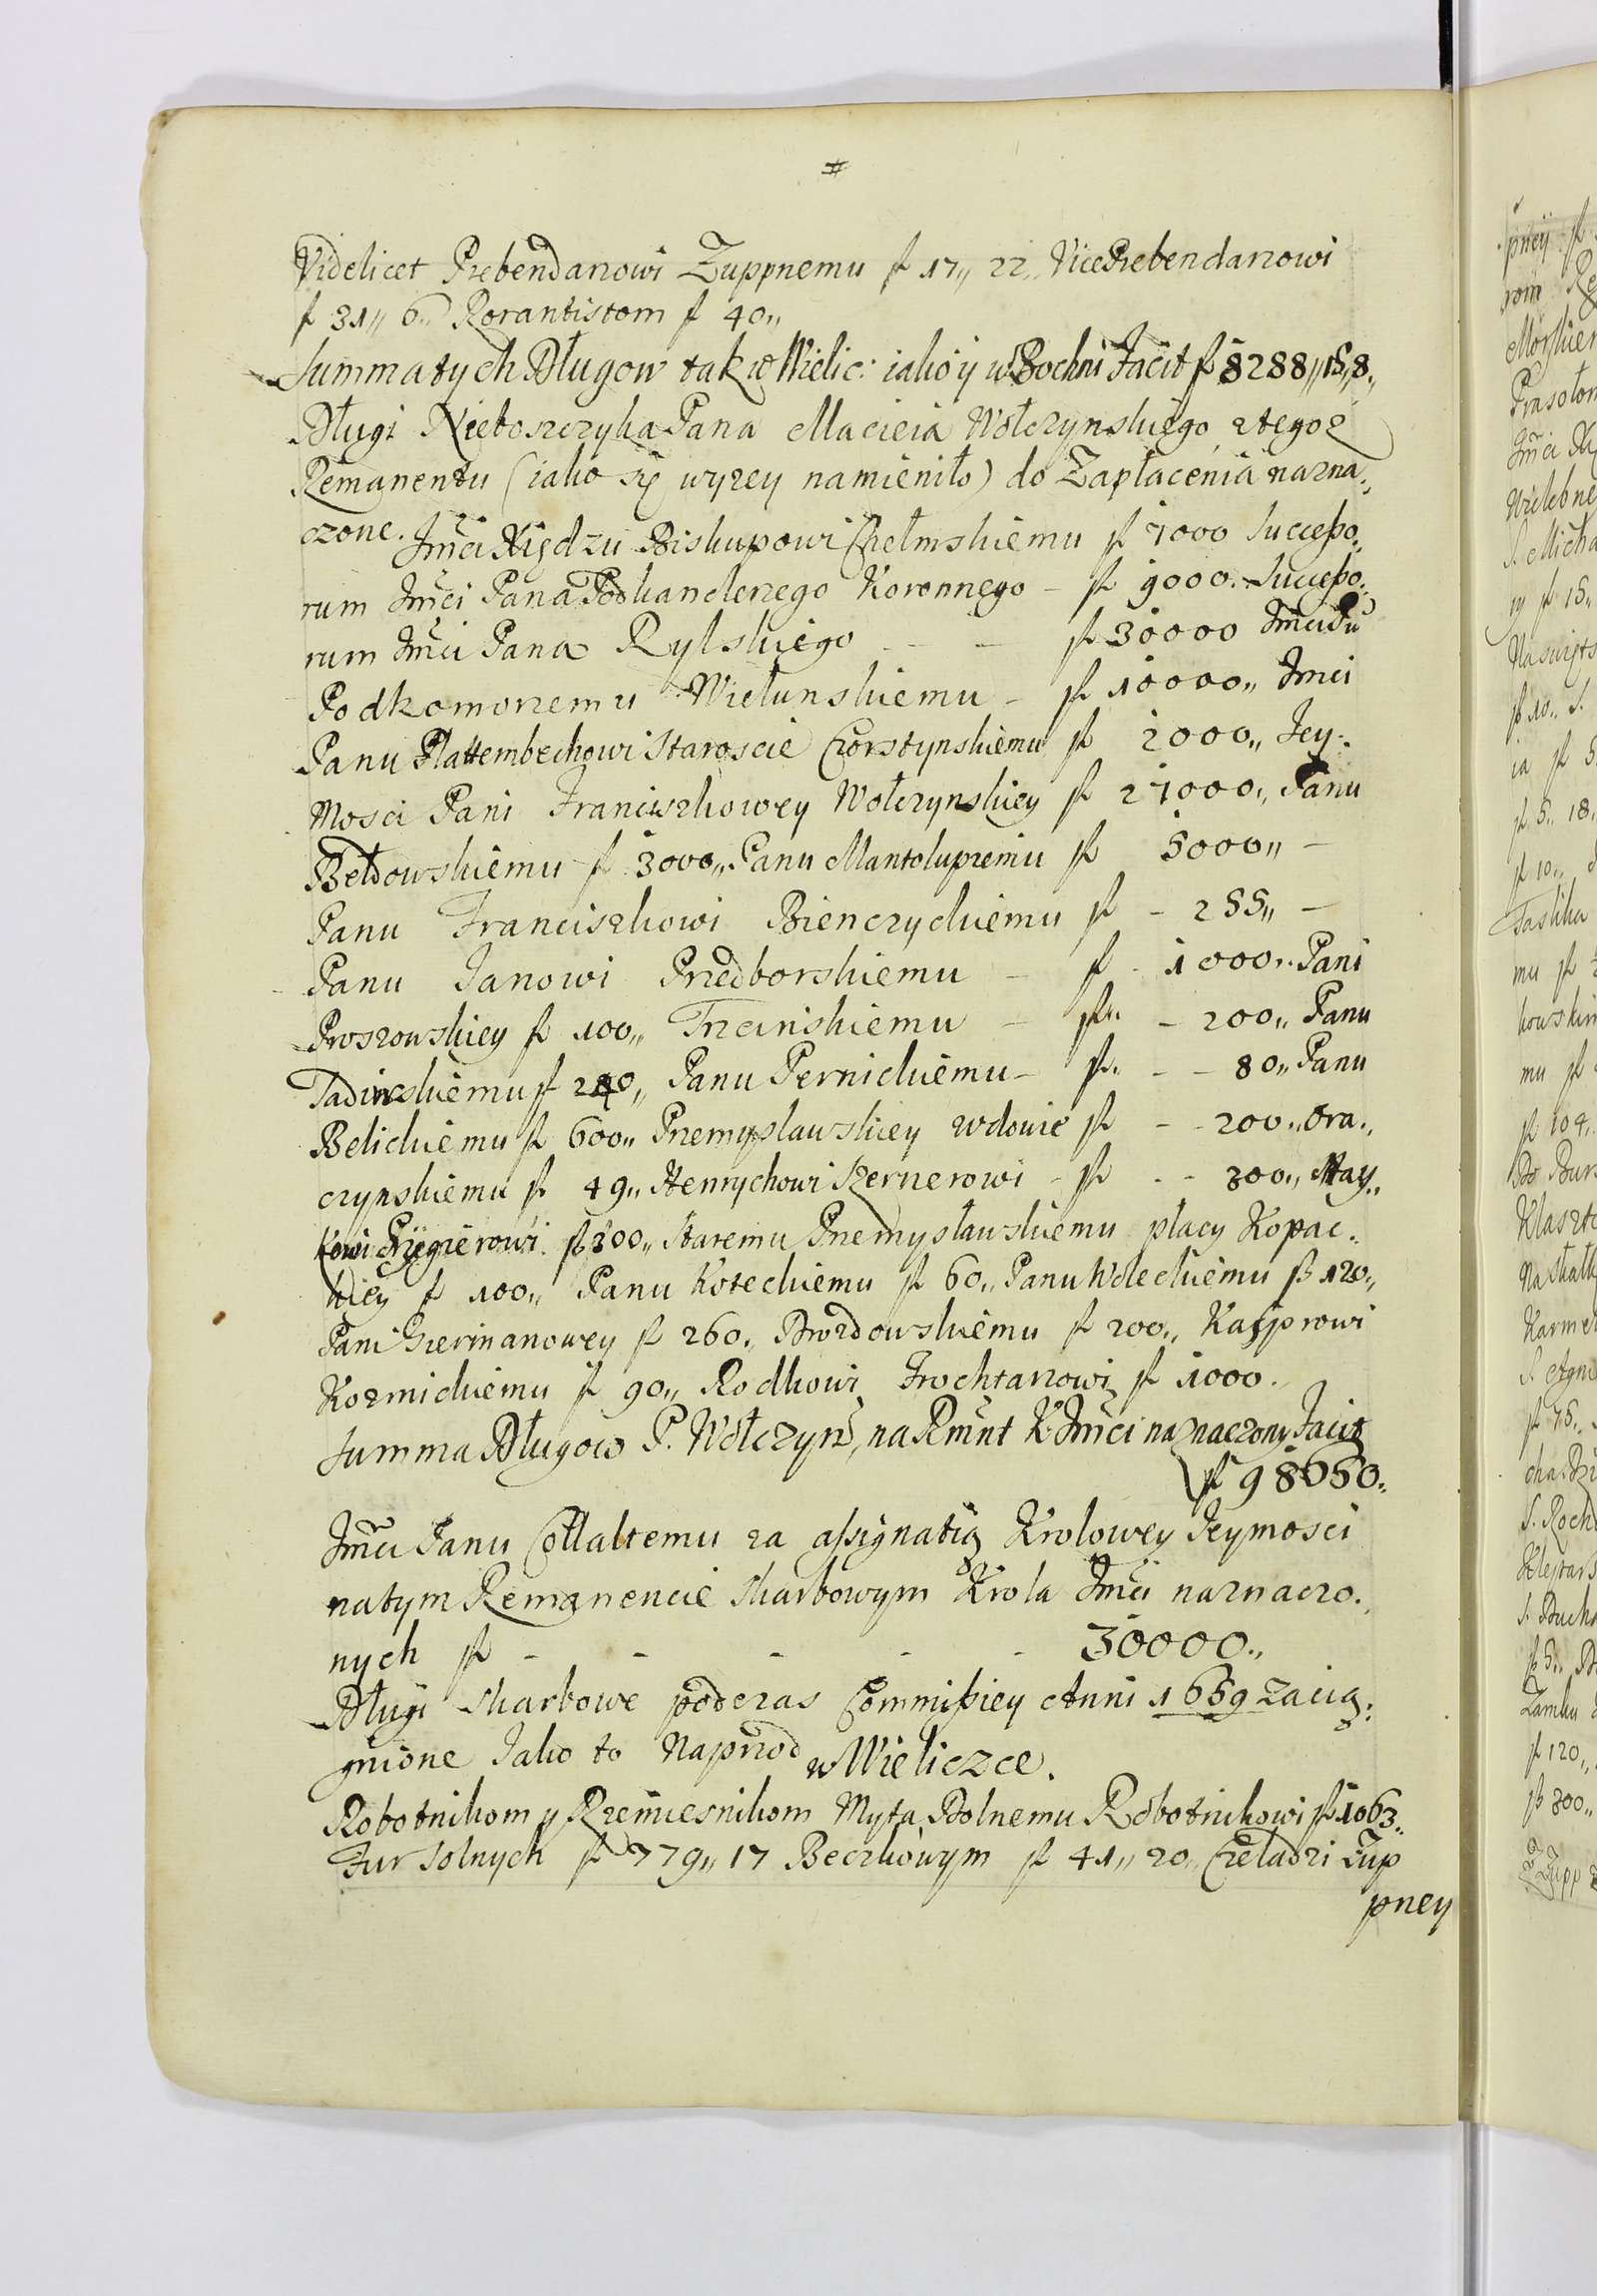 #
Videlicet Prebendarzowi Zuppnemu f 17,, 22,, VicePrebendarzowi
f 31,, 6,, Rorantistom f 40,,
Summa tych Długow tak w Wielic: iako y w Bochni Facit f 8288,,15,,8,,
Długi Nieboszczyka Pana Macieia Wołczynskiego z tegoz
Remanentu (iako się wyzey namieniło) do Zapłacenia nazna,,
czone. Jmći Xiędzu Biskupowi Chełmskiemu f 7000 Successo,,
rum Jmći Pana Podkanclerzego Koronnego - f 9000. Successo,,
rum Jmći Pana Rylskiego - - f 30000 Jmći Pu
Podkomorzemu Wielunskiemu - f 10000,, Jmci
Panu Plattembechowi Staroscie Czorstynskiemu f 2000,, Jey:
Mosci Pani Franciszkowey Wołczynskiey f 27000,, Panu
Bełdowskiemu f 3000,, Panu Mantolupiemu f 5000,, -
Panu Franciszkowi Bienczyckiemu f - 255,, -
Panu Janowi Przedborskiemu - f - 1000,, Pani
Proszowskiey f 100,, Trzcinskiemu - f,, - 200,, Panu
f Panu Pernickiemu - f,, - - 80,, Panu
Belickiemu f 600,, Przemysławskiey wdowie f - - 200,, Ora,,
czynskiemu f 49,, Henrychowi Szernerowi - f - - 300,, May,,
f 300,, Staremu Przemysławskiemu płacy Kopac,,
kiey f 100,, Panu Koteckiemu f 60,, Panu Woleckiemu f 120,,
Pani Germanowey f 260,, Drozdowskiemu f 200,, Kasprowi
Kozmickiemu f 90,, Rodkowi Frochtarzowi f 1000.
Summa Długow P. Wołczyn, na Rmnt K Jmći naznaczony Facit
f 98650,,
Jmći Panu Collaltemu za assignatią Krolowey Jeymosci
na tym Remanencie Skarbowym Krola Jmći naznaczo,,
nych f - - - - - 30000,,
Długi Skarbowe podczas Commissiey Anni 1659 zacią,,
gnione Jako to Naprzod w Wieliczce.
Robotnikom y Rzemiesnikom Myta Dolnemu Robotnikowi f 1063,,
Fur Solnych f 779,, 17 Beczkowym f 41,, 20,, Czeladzi Zup
pney